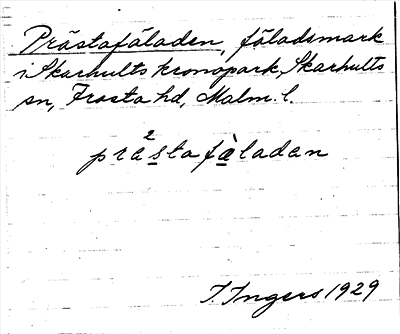 Prästafäladen, fäladsmark
i Skarhults kronopark, Skarhults
sn, Frosta hd, Malm. l.
pra²stafæ̀ladan
I. Ingers 1929